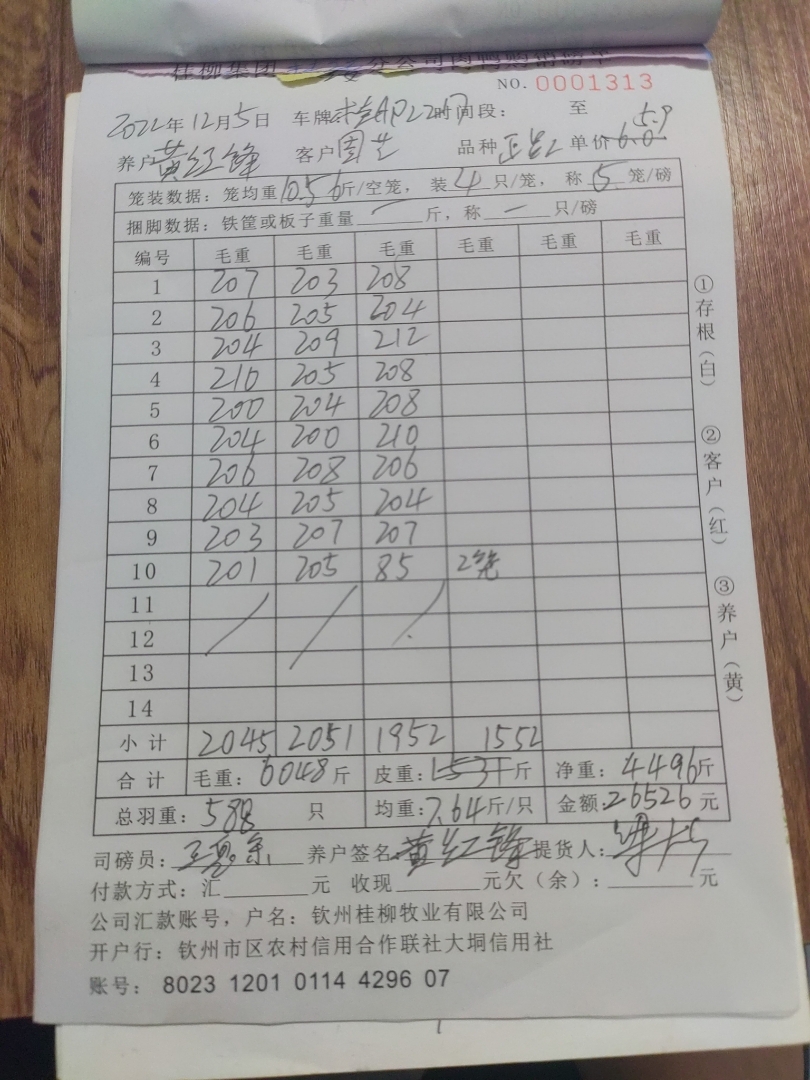 NO. 0001313
2022年12月5日 车牌 时间段: 至
5.9
养户 黄红锋 客户 品种 单价 6.0
笼装数据: 笼均重10.56斤/空笼, 装4只/笼, 称5笼/磅
捆脚数据: 铁筐或板子重量 一 斤, 称 一 只/磅
编号 毛重 毛重 毛重 毛重 毛重 毛重
1 207 203 208
2 206 205 204
3 204 209 212
4 210 205 208
5 200 204 208
6 204 200 210
7 206 208 206
8 204 205 204
9 203 207 207
10 201 205 85 2笼
11
12
13
14
小计 2045 2051 1952 1552
合计 毛重: 6048斤 皮重: 斤 净重: 4496斤
总羽重: 588 只 均重: 7.64斤/只 金额: 26526元
司磅员: 养户签名 黄红锋 提货人:
付款方式: 汇 元 收现 元欠(余): 元
公司汇款账号, 户名: 钦州桂柳牧业有限公司
开户行: 钦州市区农村信用合作联社大垌信用社
账号: 8023 1201 0114 4296 07
①存根(白) ②客户(红) ③养户(黄)